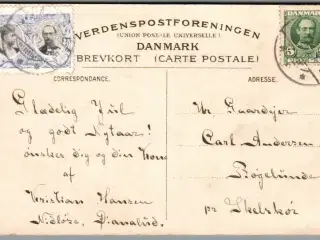 VERDENSPOSTFORENINGEN
(UNION POSTALE UNIVERSELLE)
DANMARK
BREVKORT (CARTE POSTALE)
DANMARK
5
CORRESPONDANCE.
ADRESSE.
Glædelig Jul
og godt Nytaar!
ønskes dig og din Kone
af
Kristian Hansen
Nidløse, Dianalud.
Hr. Gaardejer
Carl Andersen
Bøgelunde
pr Skelskør